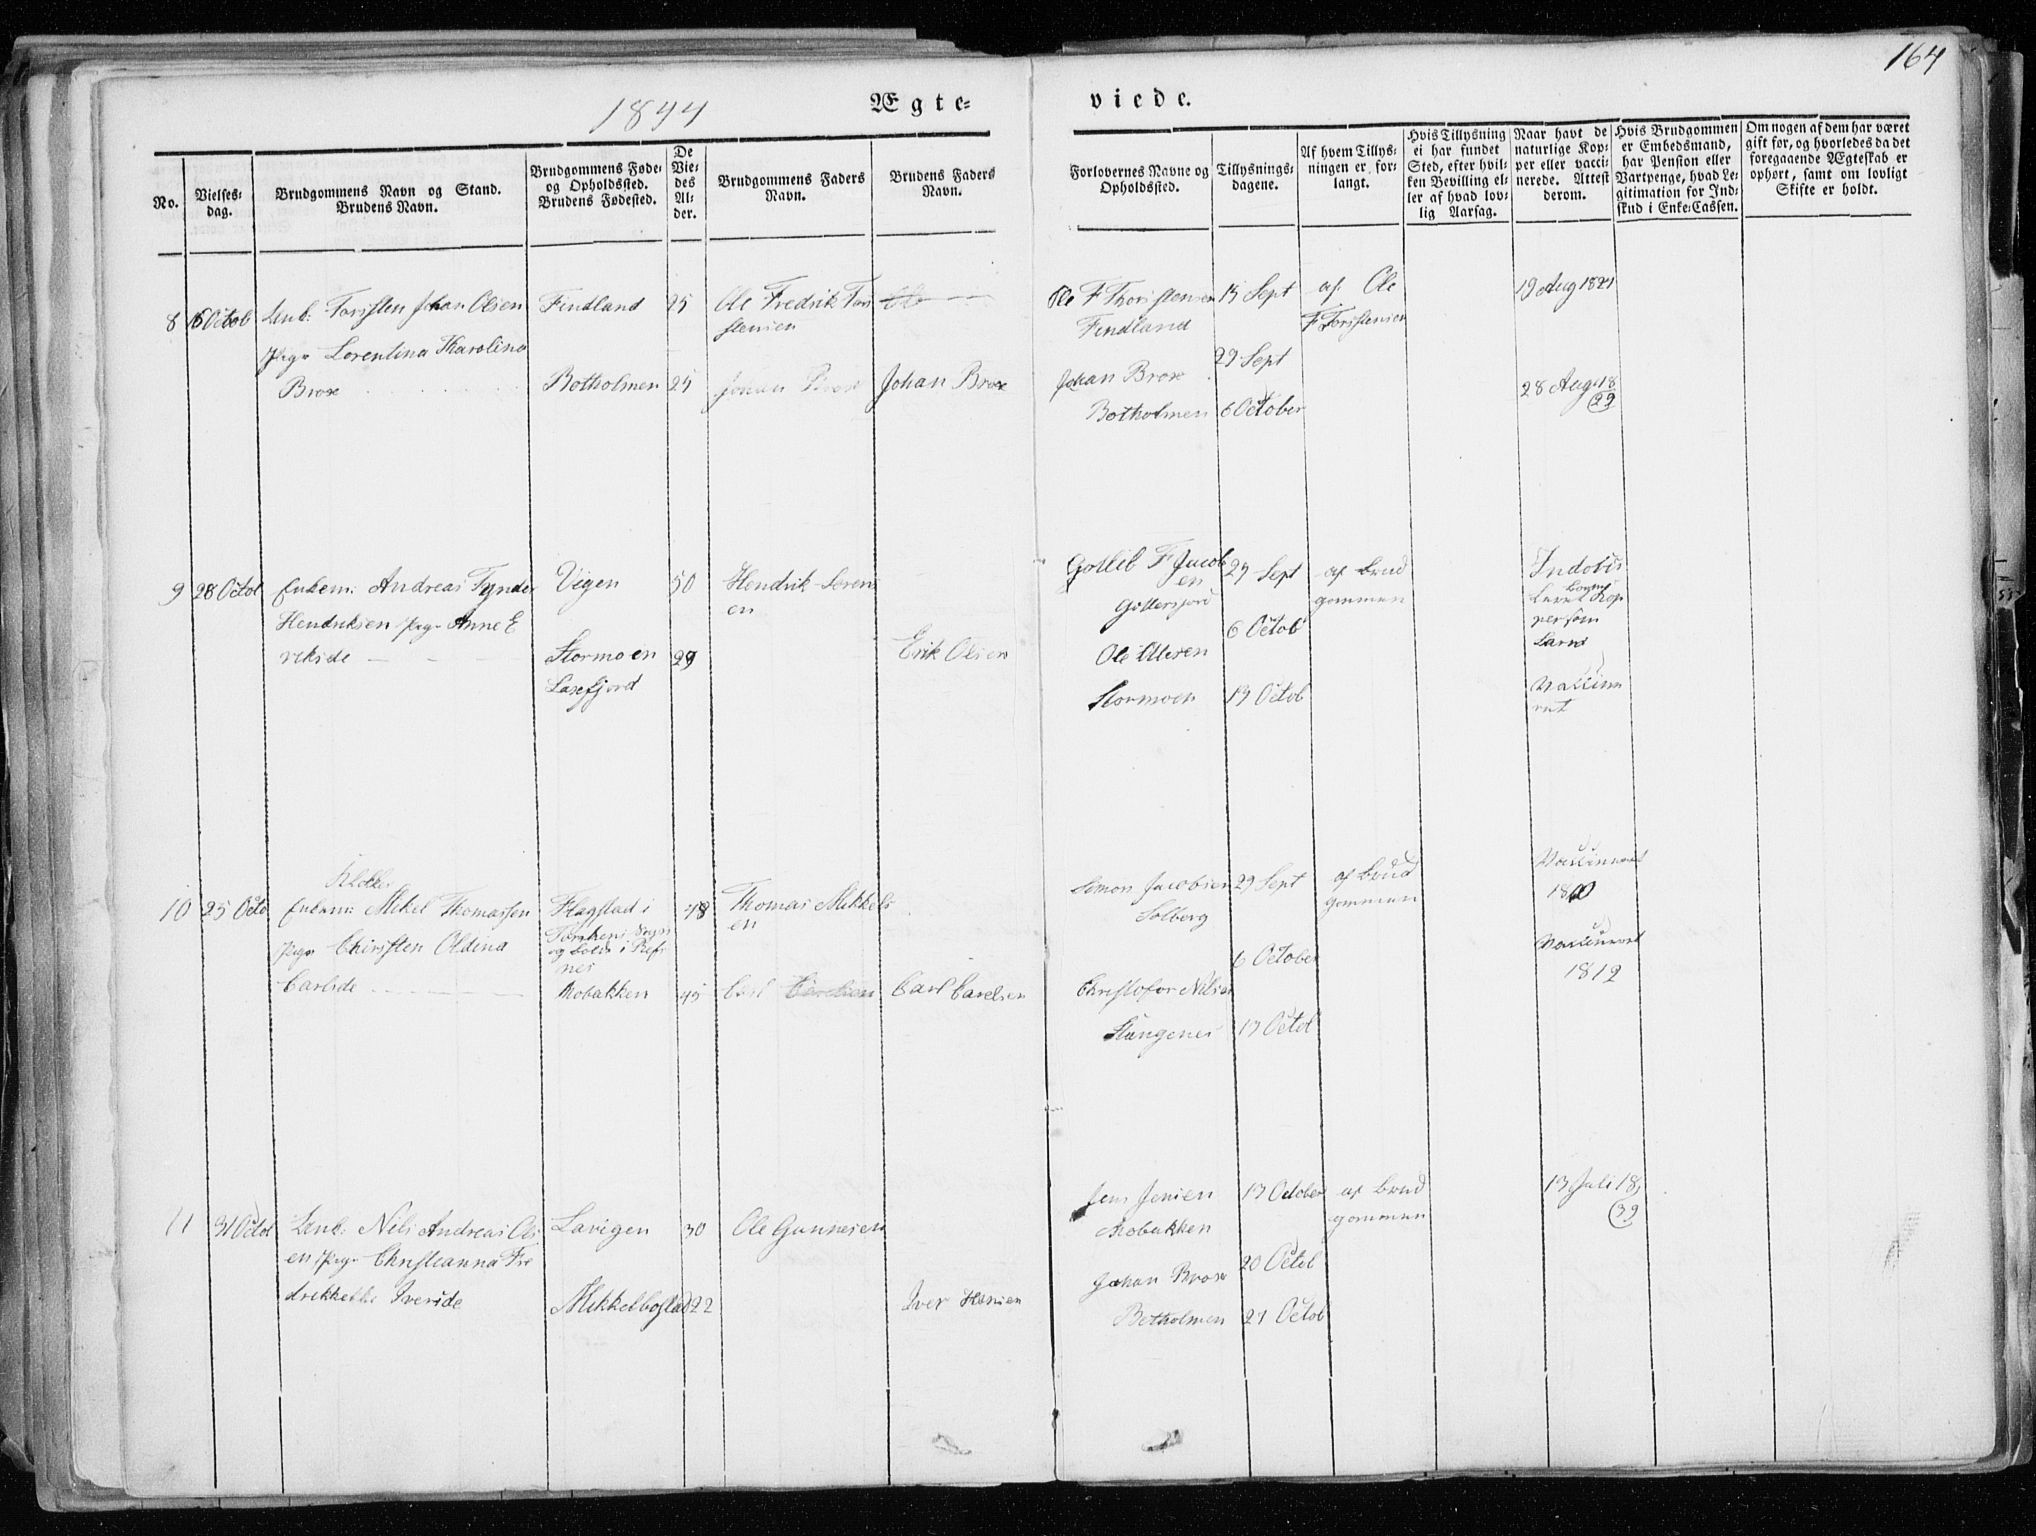 164
1844
Ægte=
viede.
No.
Vielses=
dag.
Brudgommens Navn og Stand.
Brudens Navn.
Brudgommens Føde=
og Opholdssted.
Brudens Fødested.
De
Vie=
des
Al=
der.
Brudgommens Faders
Navn.
Brudens Faders
Navn.
Forlovernes Navne og
Opholdssted.
Tillysnings=
dagene.
Af hvem Tillys=
ningen er for=
langt.
Hvis Tillysning
ei har fundet
Sted, efter hvil=
ken Bevilling el=
ler af hvad lov=
lig Aarsag.
Naar havt de
naturlige Kop=
per eller vacci=
nerede. Attest
derom.
Hvis Brudgommen
er Embedsmand,
har Pension eller
Vartpenge, hvad Le=
gitimation for Ind=
skud i Enke=Cassen.
Om nogen af dem har været
gift før, og hvorledes da det
foregaaende Ægteskab er
ophørt, samt om lovligt
Skifte er holdt.
8
Octob
Unk: Torsten Johan Olsen
Pige Lorentina Karolina
Brox
Findland
Botholmen
25
25
Ole Fredrik Tor
stensen
Johan Brox
Johan Brox
Ole F Thorstensen
Findland
Johan Brox
Botholmen
15 Sept
29 Sept
6 October
af Ole
F Torstensen
19 Aug 1821
28 Aug 18
29
9
28 Octob
Enkem: Andreas Tynder
Hendriksen Pige Anne E
rikside
Vigen
Stormoen
Laxefjord
50
29
Hendrik Soren
en
Erik Olsen
Gotlib F Jacob
en
Gottesfjord
Ole Olesen
Stormoen
29 Sept
6 Octob
13 Octob
af Brud
gommen
10
25 Octo
Klokker
Enkem: Mikel Thomassen
Pige Chirsten Oldina
Carlsde
Flagstad i
Torskens Sogn
Mobakken
48
45
Thomas Mikkels
en
Carl Carelsen
Carl Carelsen
Simon Jacobsen
Solberg
Christofor Nilsen
Stangenes
29 Sept
6 October
13 Octob
af Brud
gommen
Vaccineret
Vaccineret
1812
11
31 Octob
Unk: Nils Andreas Ols
en Pige Christianna Fre
drikkethe Iverside
Lavigen
Mikkelbostad
30
22
Ole Gunnesen
Iver Hansen
Jens Jensen
Mobakken
Johan Brox
Botholmen
13 October
20 Octob
27 Octob
af Brud
gommen
13 Juli 18
39